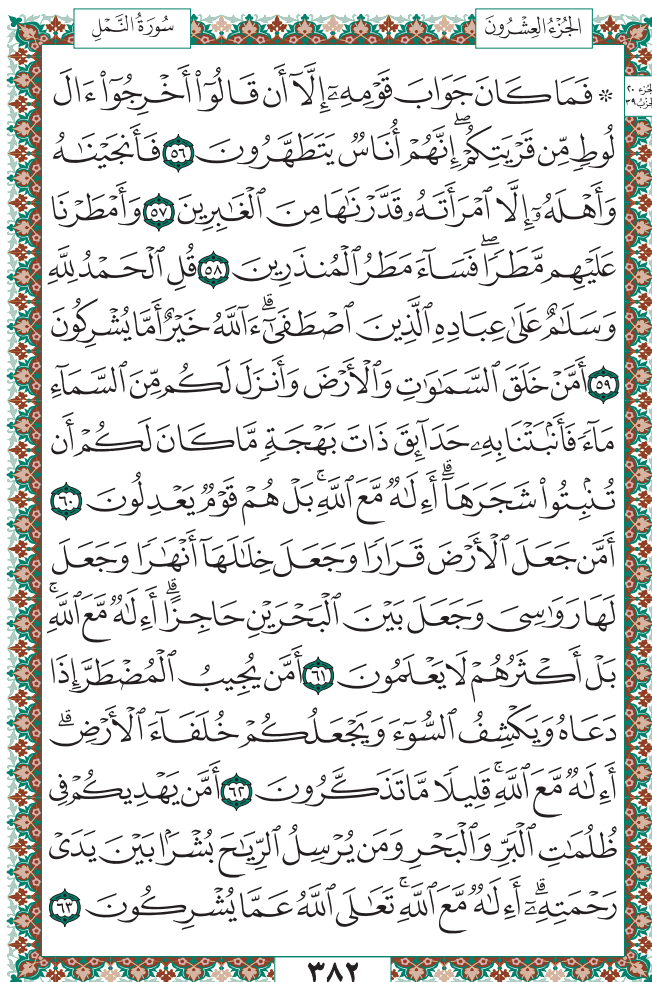 الجُزْءُ العِشْرُونَ
سُورَةُ النَّمْلِ
الجزء ٢٠
الحزب ٣٩
۞ فَمَا كَانَ جَوَابَ قَوْمِهِۦٓ إِلَّآ أَن قَالُوٓاْ أَخۡرِجُوٓاْ ءَالَ
لُوطٖ مِّن قَرۡيَتِكُمۡۖ إِنَّهُمۡ أُنَاسٞ يَتَطَهَّرُونَ ٥٦ فَأَنجَيۡنَٰهُ
وَأَهۡلَهُۥٓ إِلَّا ٱمۡرَأَتَهُۥ قَدَّرۡنَٰهَا مِنَ ٱلۡغَٰبِرِينَ ٥٧ وَأَمۡطَرۡنَا
عَلَيۡهِم مَّطَرٗاۖ فَسَآءَ مَطَرُ ٱلۡمُنذَرِينَ ٥٨ قُلِ ٱلۡحَمۡدُ لِلَّهِ
وَسَلَٰمٌ عَلَىٰ عِبَادِهِ ٱلَّذِينَ ٱصۡطَفَىٰٓۗ ءَآللَّهُ خَيۡرٌ أَمَّا يُشۡرِكُونَ
٥٩ أَمَّنۡ خَلَقَ ٱلسَّمَٰوَٰتِ وَٱلۡأَرۡضَ وَأَنزَلَ لَكُم مِّنَ ٱلسَّمَآءِ
مَآءٗ فَأَنۢبَتۡنَا بِهِۦ حَدَآئِقَ ذَاتَ بَهۡجَةٖ مَّا كَانَ لَكُمۡ أَن
تُنۢبِتُواْ شَجَرَهَآۗ أَءِلَٰهٞ مَّعَ ٱللَّهِۚ بَلۡ هُمۡ قَوۡمٞ يَعۡدِلُونَ ٦٠
أَمَّن جَعَلَ ٱلۡأَرۡضَ قَرَارٗا وَجَعَلَ خِلَٰلَهَآ أَنۡهَٰرٗا وَجَعَلَ
لَهَا رَوَٰسِيَ وَجَعَلَ بَيۡنَ ٱلۡبَحۡرَيۡنِ حَاجِزًاۗ أَءِلَٰهٞ مَّعَ ٱللَّهِۚ
بَلۡ أَكۡثَرُهُمۡ لَا يَعۡلَمُونَ ٦١ أَمَّن يُجِيبُ ٱلۡمُضۡطَرَّ إِذَا
دَعَاهُ وَيَكۡشِفُ ٱلسُّوٓءَ وَيَجۡعَلُكُمۡ خُلَفَآءَ ٱلۡأَرۡضِۗ
أَءِلَٰهٞ مَّعَ ٱللَّهِۚ قَلِيلٗا مَّا تَذَكَّرُونَ ٦٢ أَمَّن يَهۡدِيكُمۡ فِي
ظُلُمَٰتِ ٱلۡبَرِّ وَٱلۡبَحۡرِ وَمَن يُرۡسِلُ ٱلرِّيَٰحَ بُشۡرَۢا بَيۡنَ يَدَيۡ
رَحۡمَتِهِۦٓۗ أَءِلَٰهٞ مَّعَ ٱللَّهِۚ تَعَٰلَى ٱللَّهُ عَمَّا يُشۡرِكُونَ ٦٣
٣٨٢